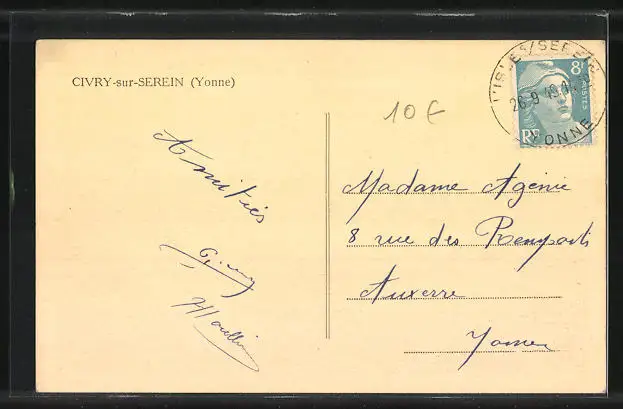 CIVRY-sur-SEREIN (Yonne)
10 €
L'ISLE S/ SEREIN
26-9 49
YONNE
8F
POSTES
RF
Amitiés
Madame Agénie
8 rue des Remparts
Auxerre
Yonne